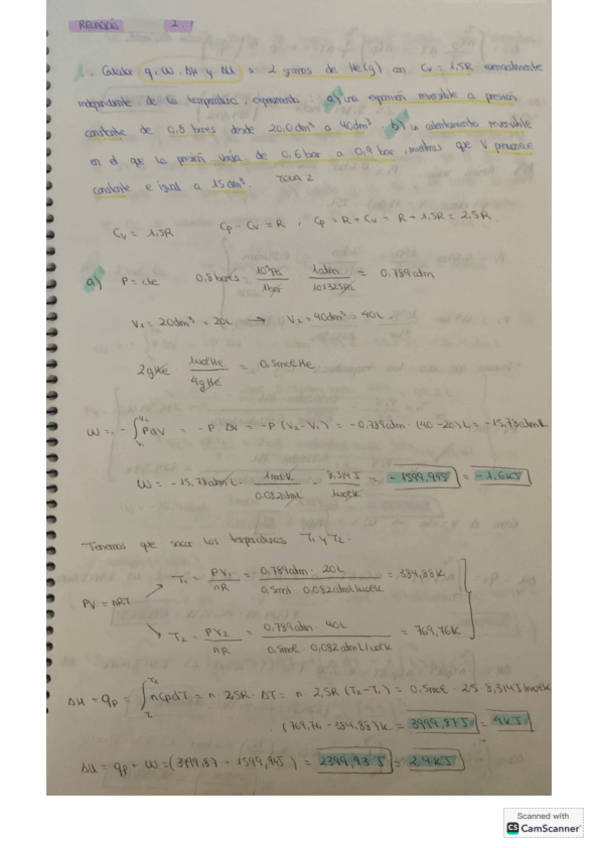 RELACIÓN 2.
1. Calcular q, W, ΔH y ΔU si 2 gramos de He(g) con Cv = 1,5R esencialmente
independiente de la temperatura, experimenta: a) una expansión reversible a presión
constante de 0,8 bares desde 20,0 dm³ a 40 dm³ b) un calentamiento reversible
en el que la presión varía de 0,6 bar a 0,9 bar, mientras que V permanece
constante e igual a 15 dm³. TEMA 2
Cv = 1,5R Cp - Cv = R ; Cp = R + Cv = R + 1,5R = 2,5R.
a) P = cte 0,8 bares · 10⁵Pa/1bar · 1atm/101325Pa = 0,789 atm
V₁ = 20dm³ = 20L → V₂ = 40dm³ = 40L
2gHe · 1molHe/4gHe = 0,5mol He
W = - ∫ PdV = -P ΔV = -P (V₂-V₁) = -0,789atm · (40-20)L = -15,78atmL
W = -15,78atmL · 1molK/0,082atmL · 8,314J/1molK = -1599,94J = -1,6KJ
Tenemos que sacar las temperaturas T₁ y T₂:
PV = nRT
T₁ = PV₁/nR = 0,789atm · 20L/0,5mol · 0,082atmL/molK = 384,88K
T₂ = PV₂/nR = 0,789atm · 40L/0,5mol · 0,082atmL/molK = 769,76K
ΔH = qp = ∫ nCpdT = n · 2,5R · ΔT = n · 2,5R (T₂-T₁) = 0,5mol · 2,5 · 8,314J/molK
· (769,76 - 384,88)K = 3999,87J = 4KJ
ΔU = qp + W = (3999,87 - 1599,94J) = 2399,93J = 2,4KJ
Scanned with
CS CamScanner